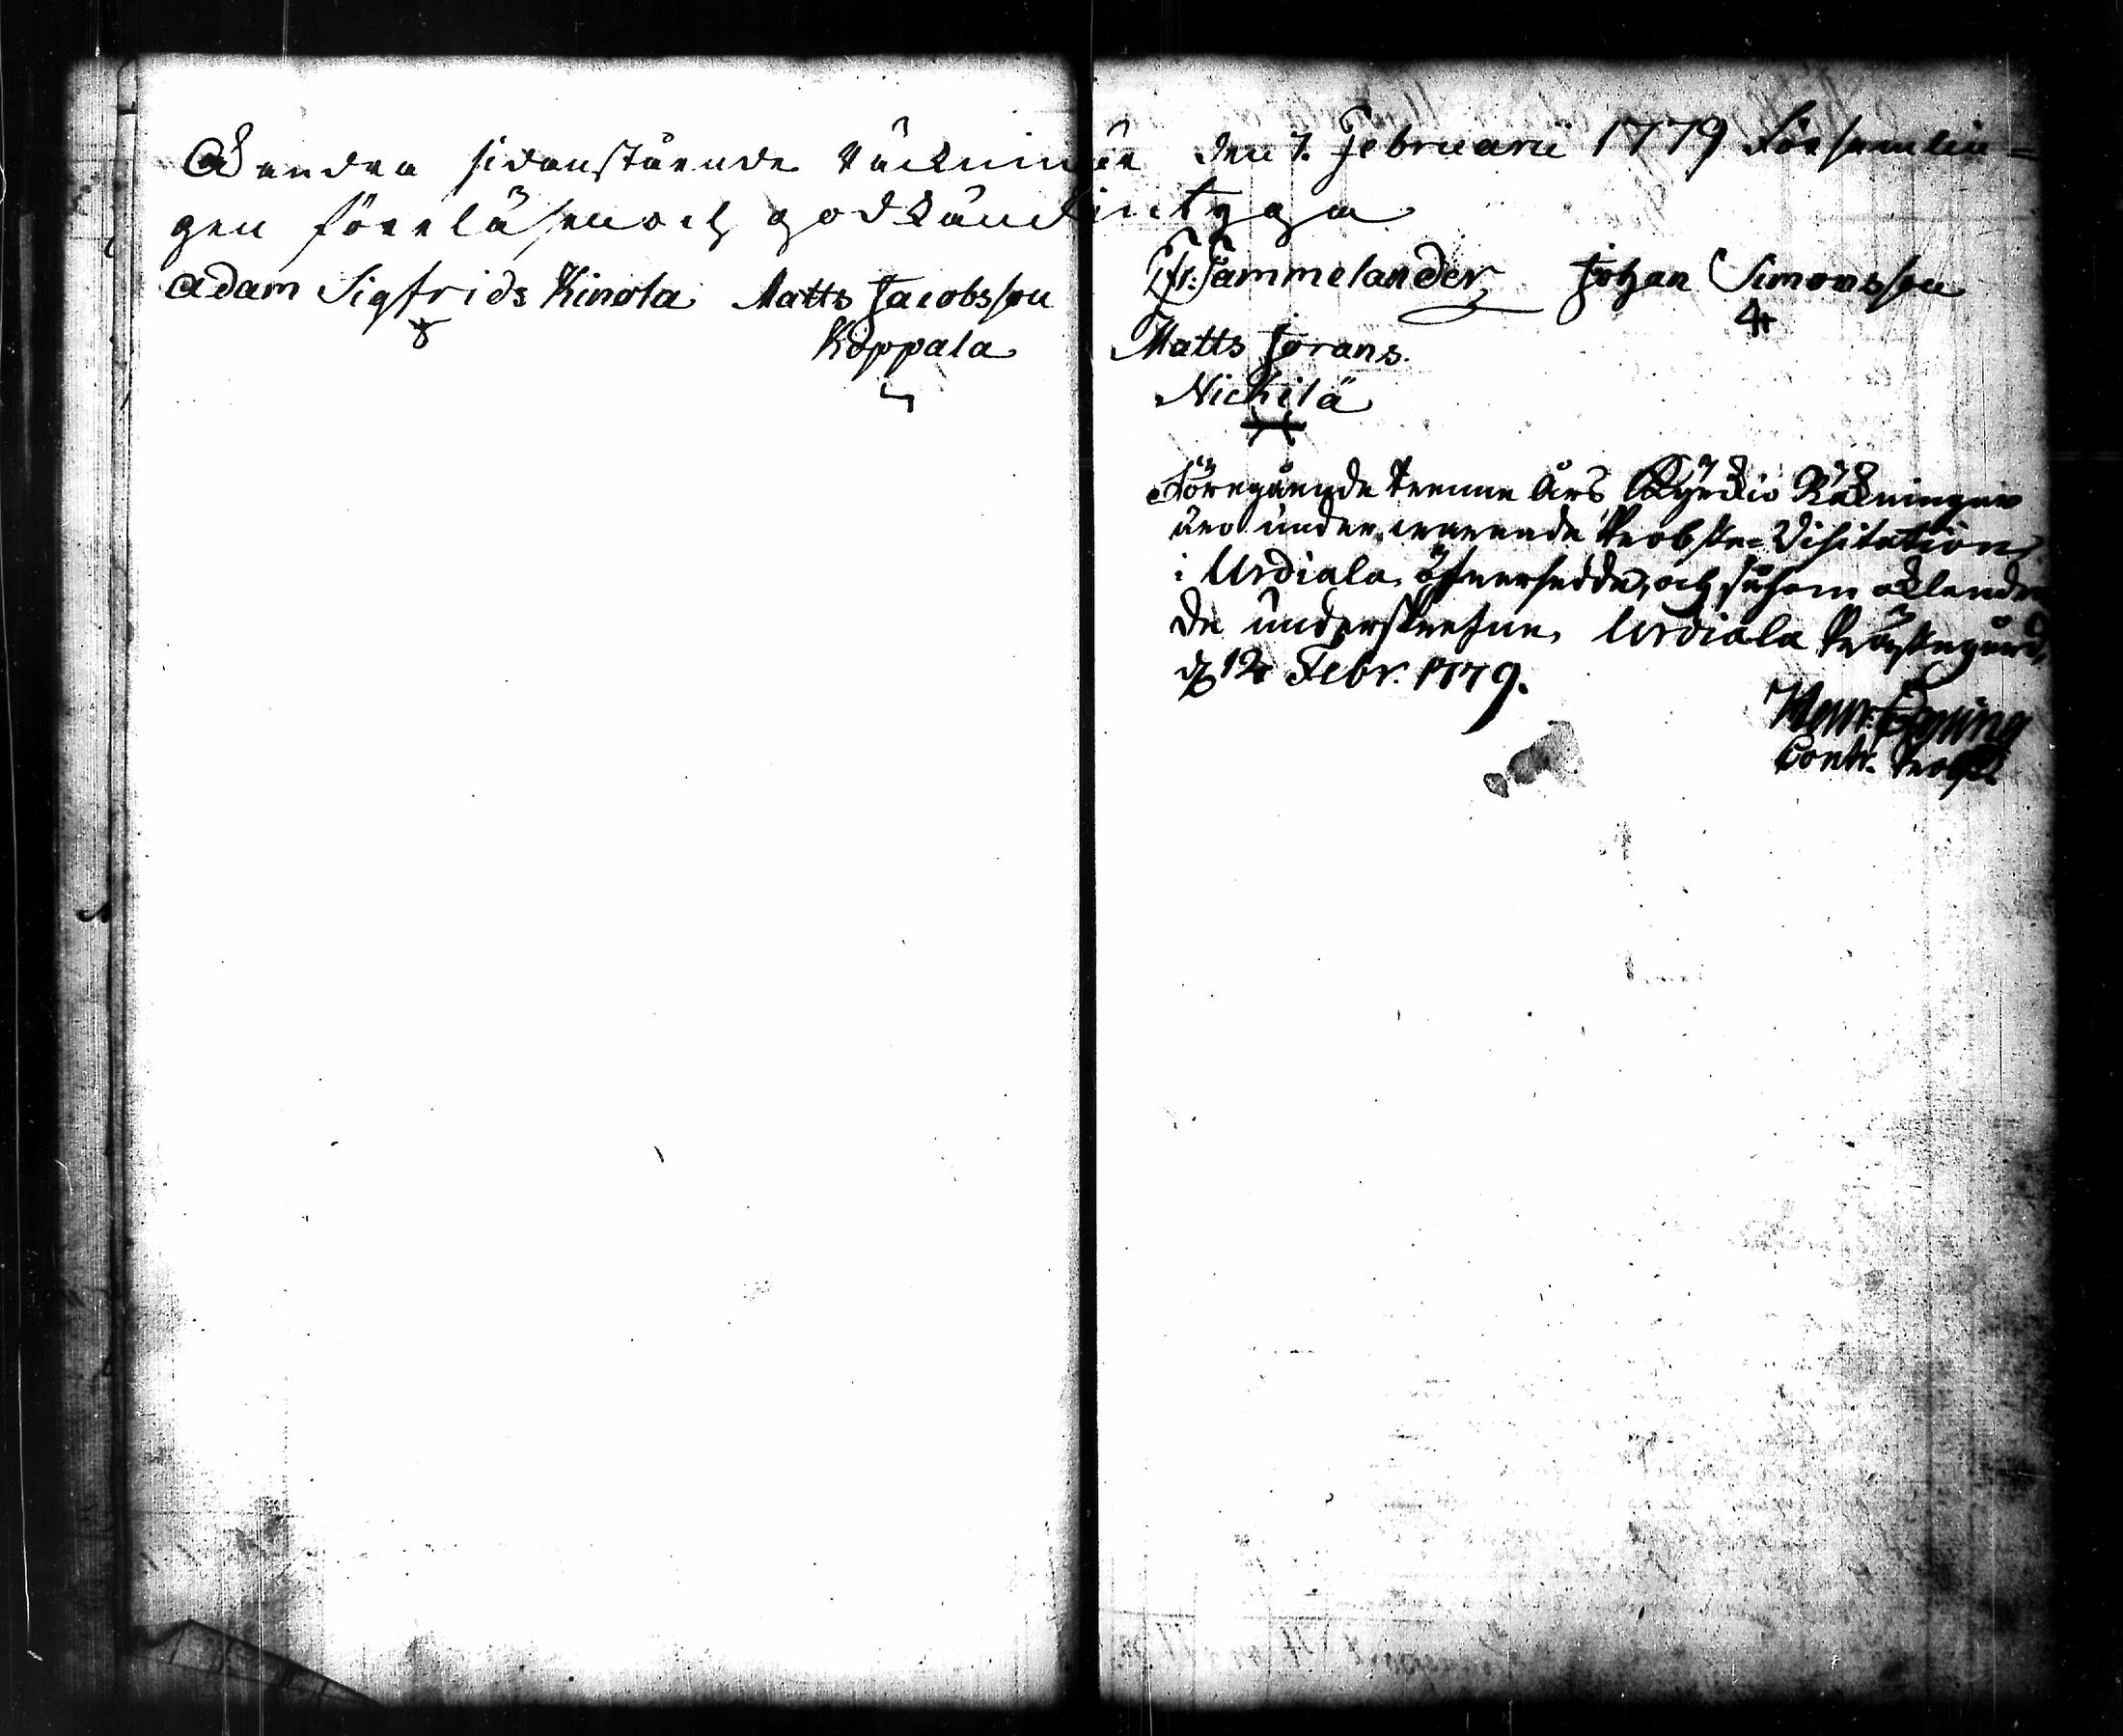 andra sidonstående räckning är den 7. Februarii 1779 Församlin=
gen föreläsen och godkänd intyga
Adam Sigfrids Kinola Matts Jacobsson Fr: Tammelander Johan Simonsson
Koppala Matts Jörans.
Nickilä
Föregående trenne Års Kyrkio Räkningar
äro under warande Probste-Visitation
i Urdiala öfwersedde, och såsom
de underskrefne, Urdiala Prästegård,
d 12 Febr. 1779.
Henr.
Contr. Probst